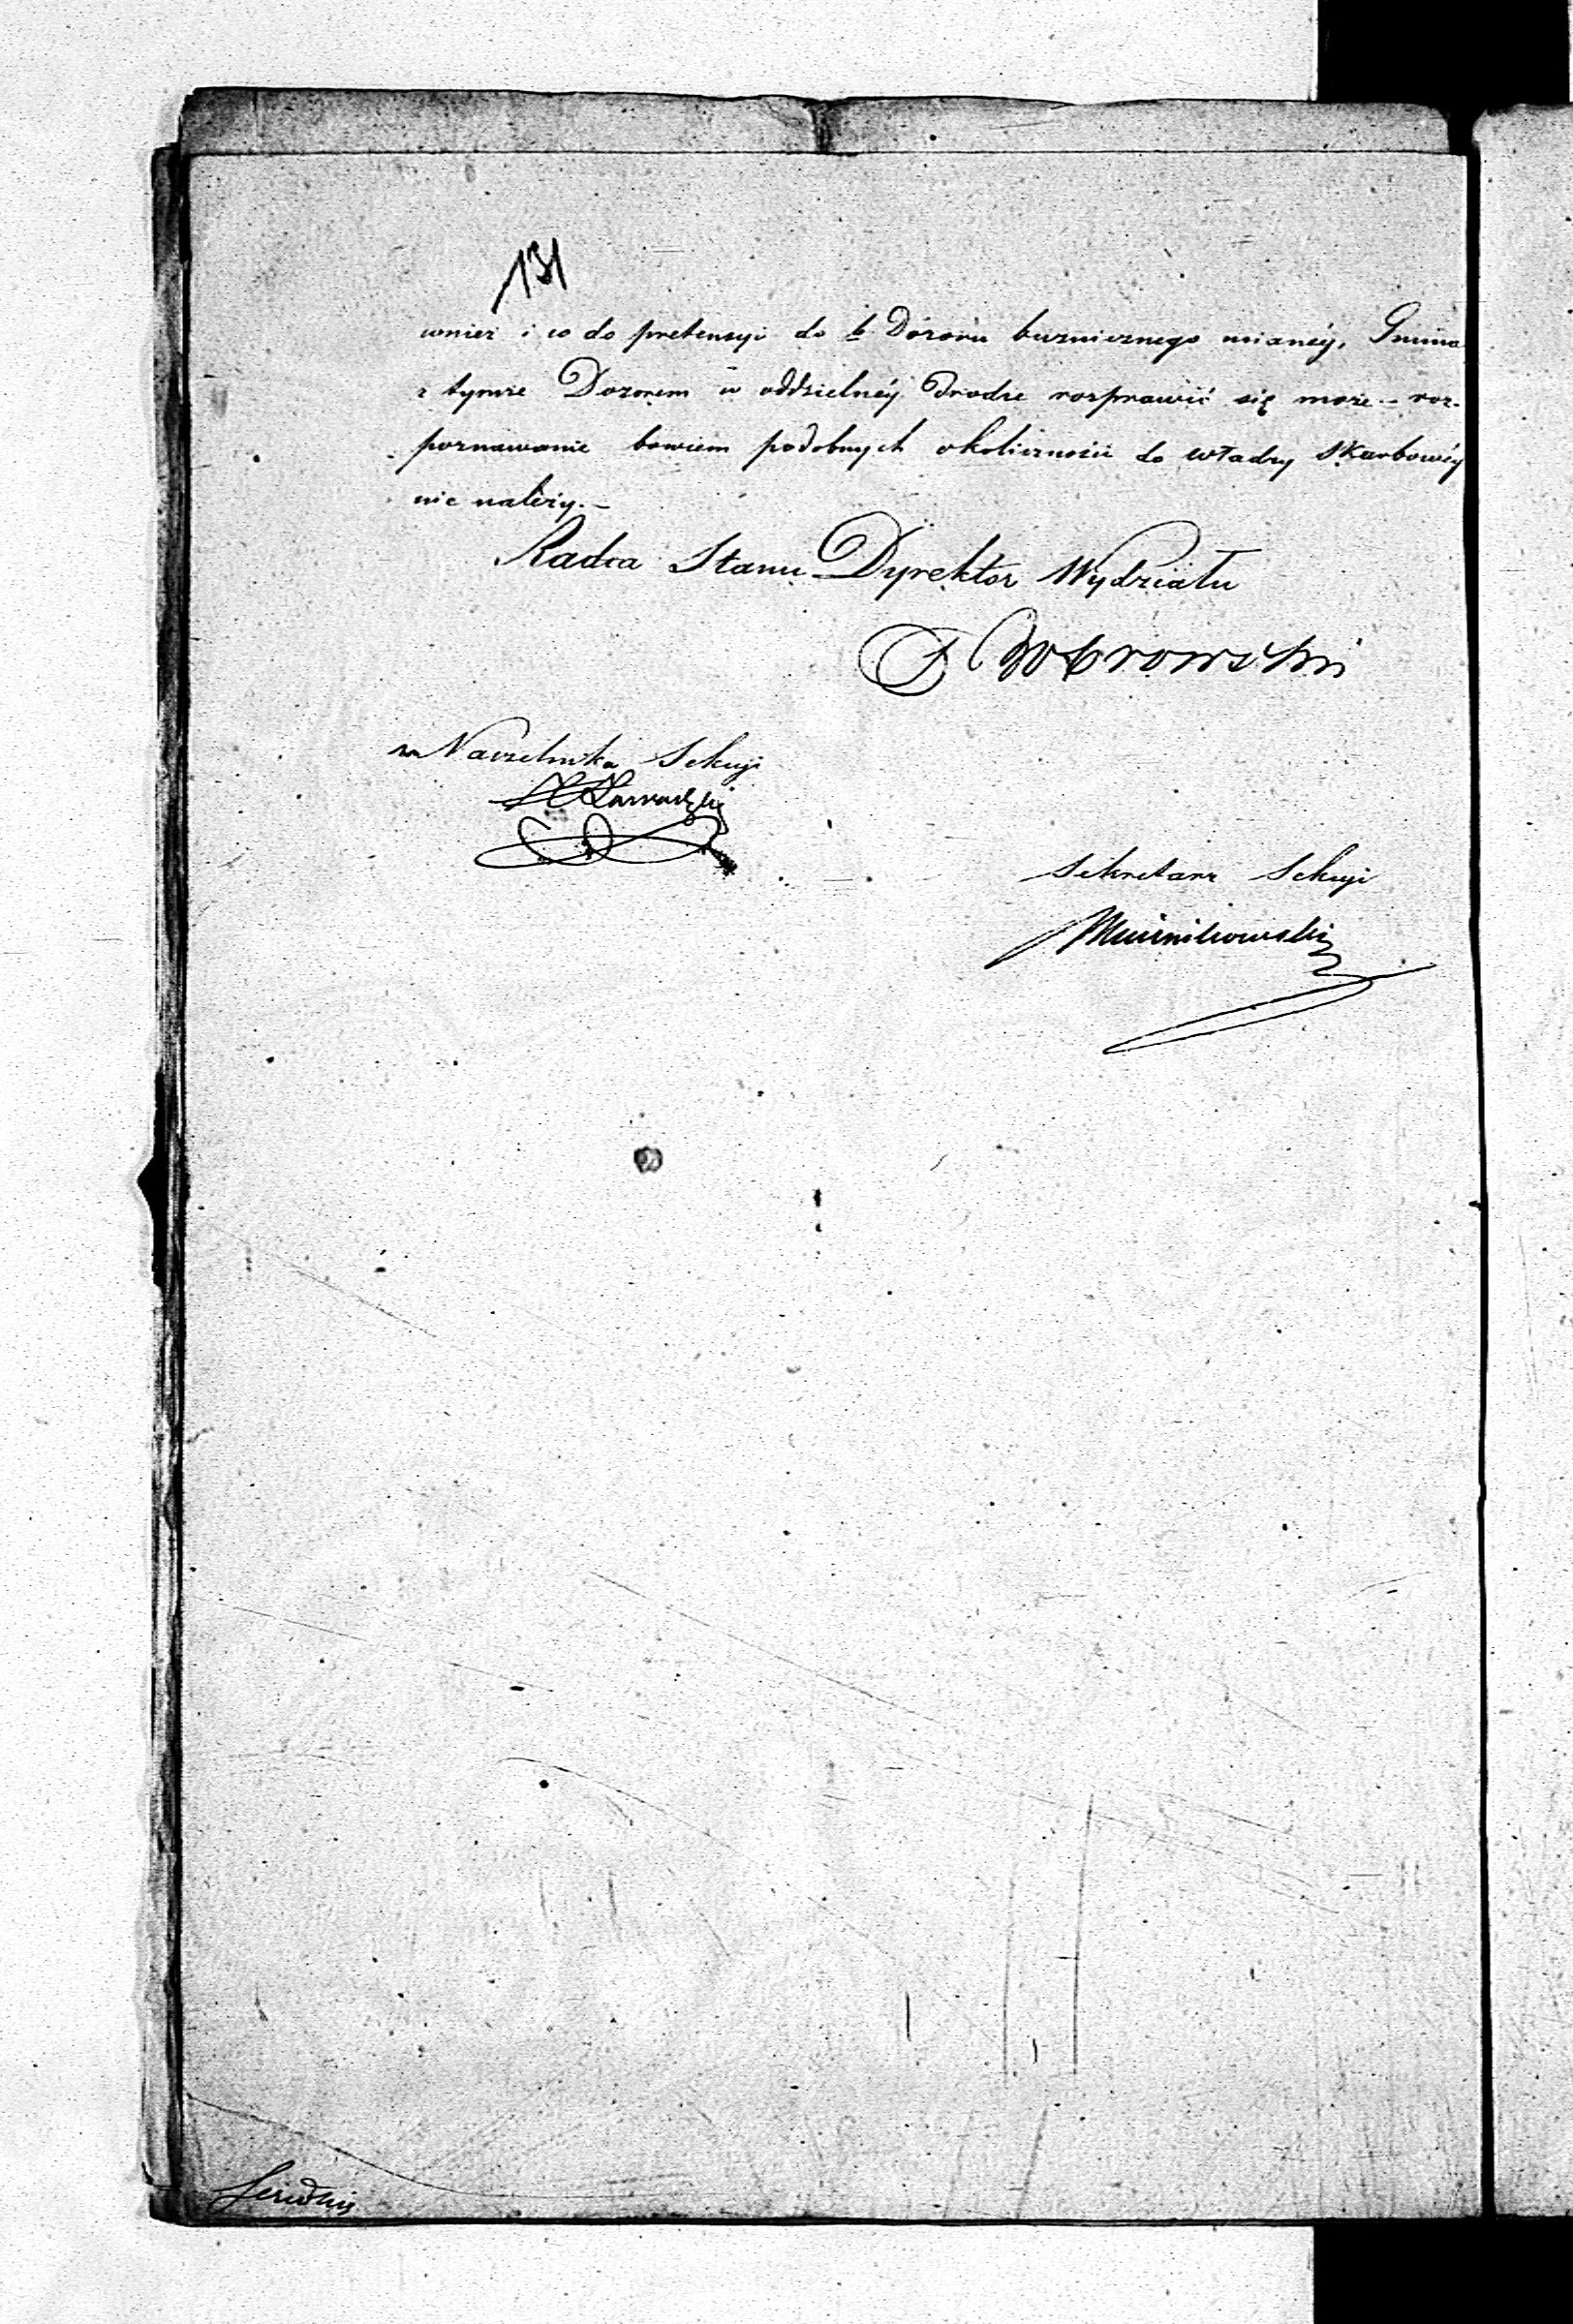 131
wnież i co do pretensyi do b. Dozoru bużniczego mianéy, Gmina
z tymże Dozorem w oddzielnéy drodze rosprawić się może. – roz-
poznawanie bowiem podobnych okoliczności do władzy Skarbowéy
nie należy. –
Radca Stanu Dyrektor Wydziału
Dobrowski
za Naczelnika Sekcyi
Sekretarz Sekcyi